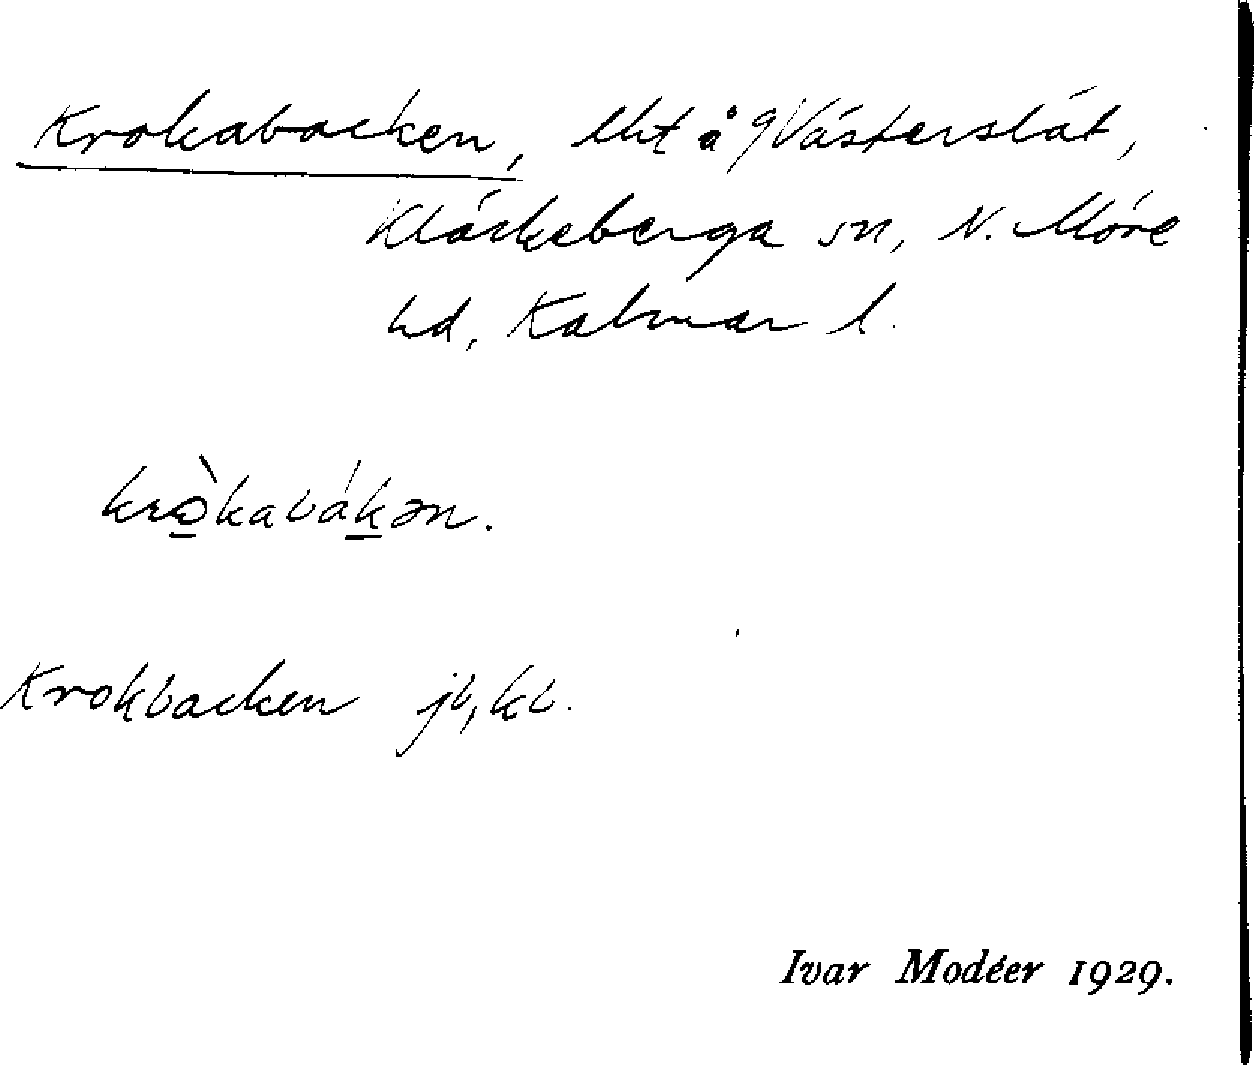 Krokabacken, lht å Västerslät,
Kläckeberga sn, N. Möre
hd, Kalmar l.
krò̱kabáḵən.
Krokbacken jb, kb.
Ivar Modéer 1929.